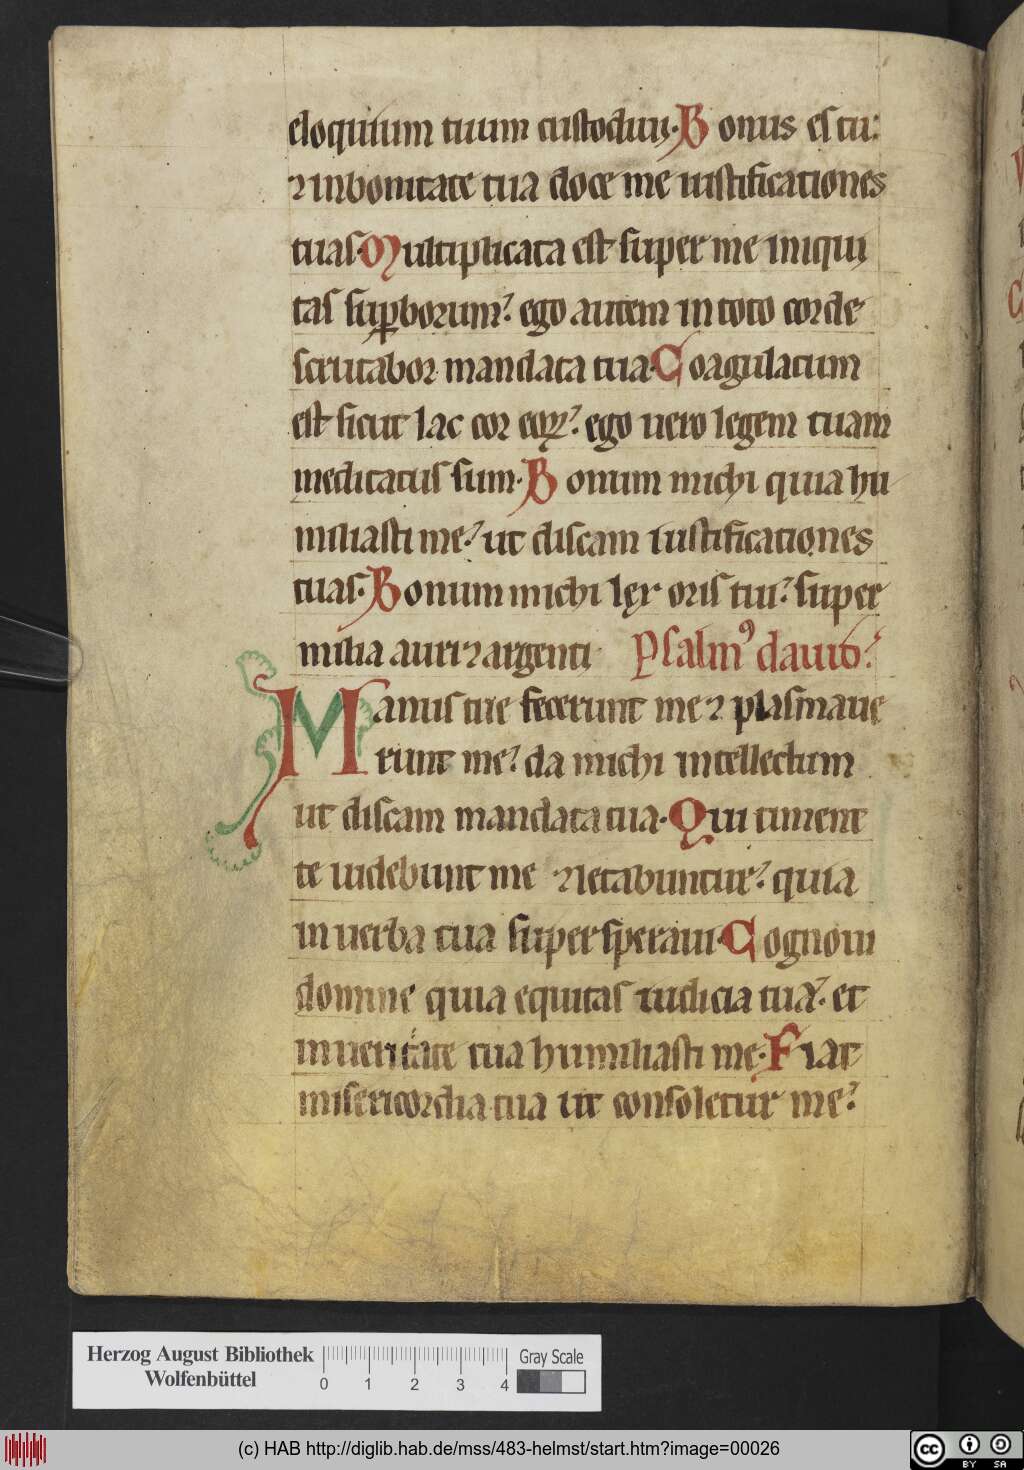 eloquium tuum custodiui. Bonus es tu:
⁊ in bonitate tua doce me iustificationes
tuas. Multiplicata est super me iniqui
tas suꝑborum? ego autem in toto corde
scrutabor mandata tua. Coagulatum
est sicut lac cor eoꝝ? ego uero legem tuam
meditatus sum. Bonum michi quia hu
miliasti me? ut discam iustificationes
tuas. Bonum michi lex oris tui? super
milia auri ⁊ argenti Psalmꝰ dauid?
Manus tue fecerunt me ⁊ plasmaue
runt me? da michi intellectum
ut discam mandata tua. Qui timent
te uidebunt me ⁊ letabuntur? quia
in uerba tua supersperaui. Cognoui
domine quia equitas iudicia tua? et
in ueritate tua humiliasti me. Fiat
misericordia tua ut consoletur me?
Herzog August Bibliothek
Wolfenbüttel
0 1 2 3 4
Gray Scale
(c) HAB http://diglib.hab.de/mss/483-helmst/start.htm?image=00026
cc BY SA